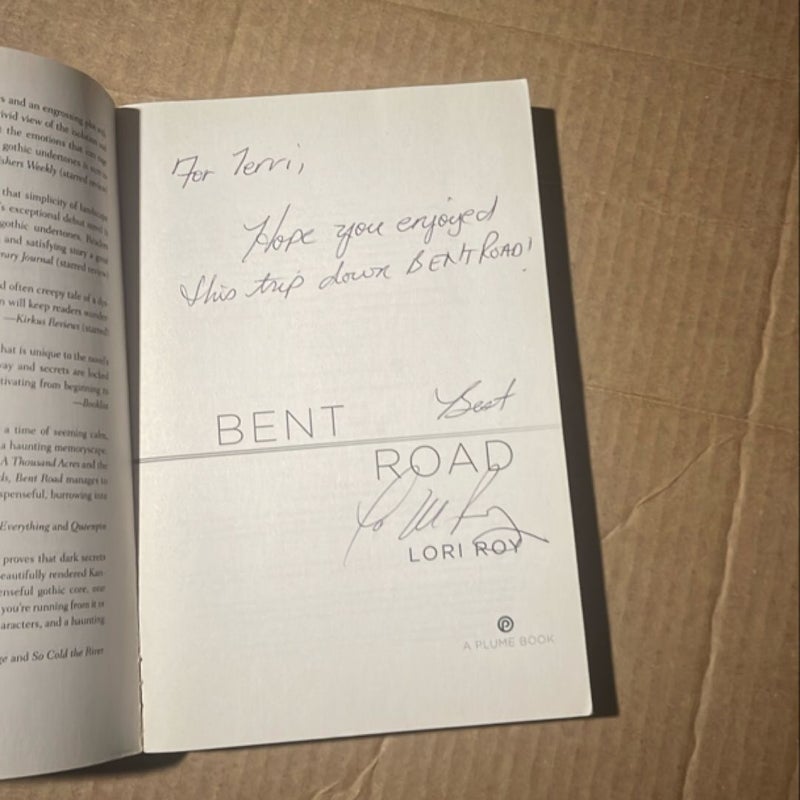 s and an engrossing
vivid view of the isolation and
the emotions that can
gothic undertones
shers Weekly (starred review)
that simplicity of landscape
's exceptional debut novel is
gothic undertones. Readers
and satisfying story a good
rary Journal (starred review)
d often creepy tale of a dys-
n will keep readers wonder
—Kirkus Reviews (starred)
hat is unique to the novel's
way and secrets are locked
tivating from beginning to
—Booklist
a time of seeming calm,
a haunting memoryscape.
A Thousand Acres and the
ds, Bent Road manages to
spenseful, burrowing into
Everything and Queenpin
proves that dark secrets
eautifully rendered Kan-
enseful gothic core, one
you're running from it or
aracters, and a haunting
ge and So Cold the River
For Terri,
Hope you enjoyed
this trip down BENT ROAD!
Best
BENT
ROAD
LORI ROY
A PLUME BOOK